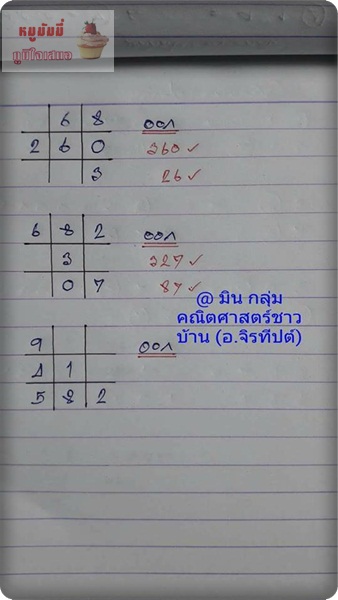 หมูมัมมี่
ภูมิใจเสนอ
6 8 ออก
2 6 0 360 ✓
3 26 ✓
6 8 2 ออก
3 327 ✓
0 7 87 ✓
@ มิน กลุ่ม
คณิตศาสตร์ชาว
บ้าน (อ.จิรทีปต์)
9 ออก
4 1
5 8 2